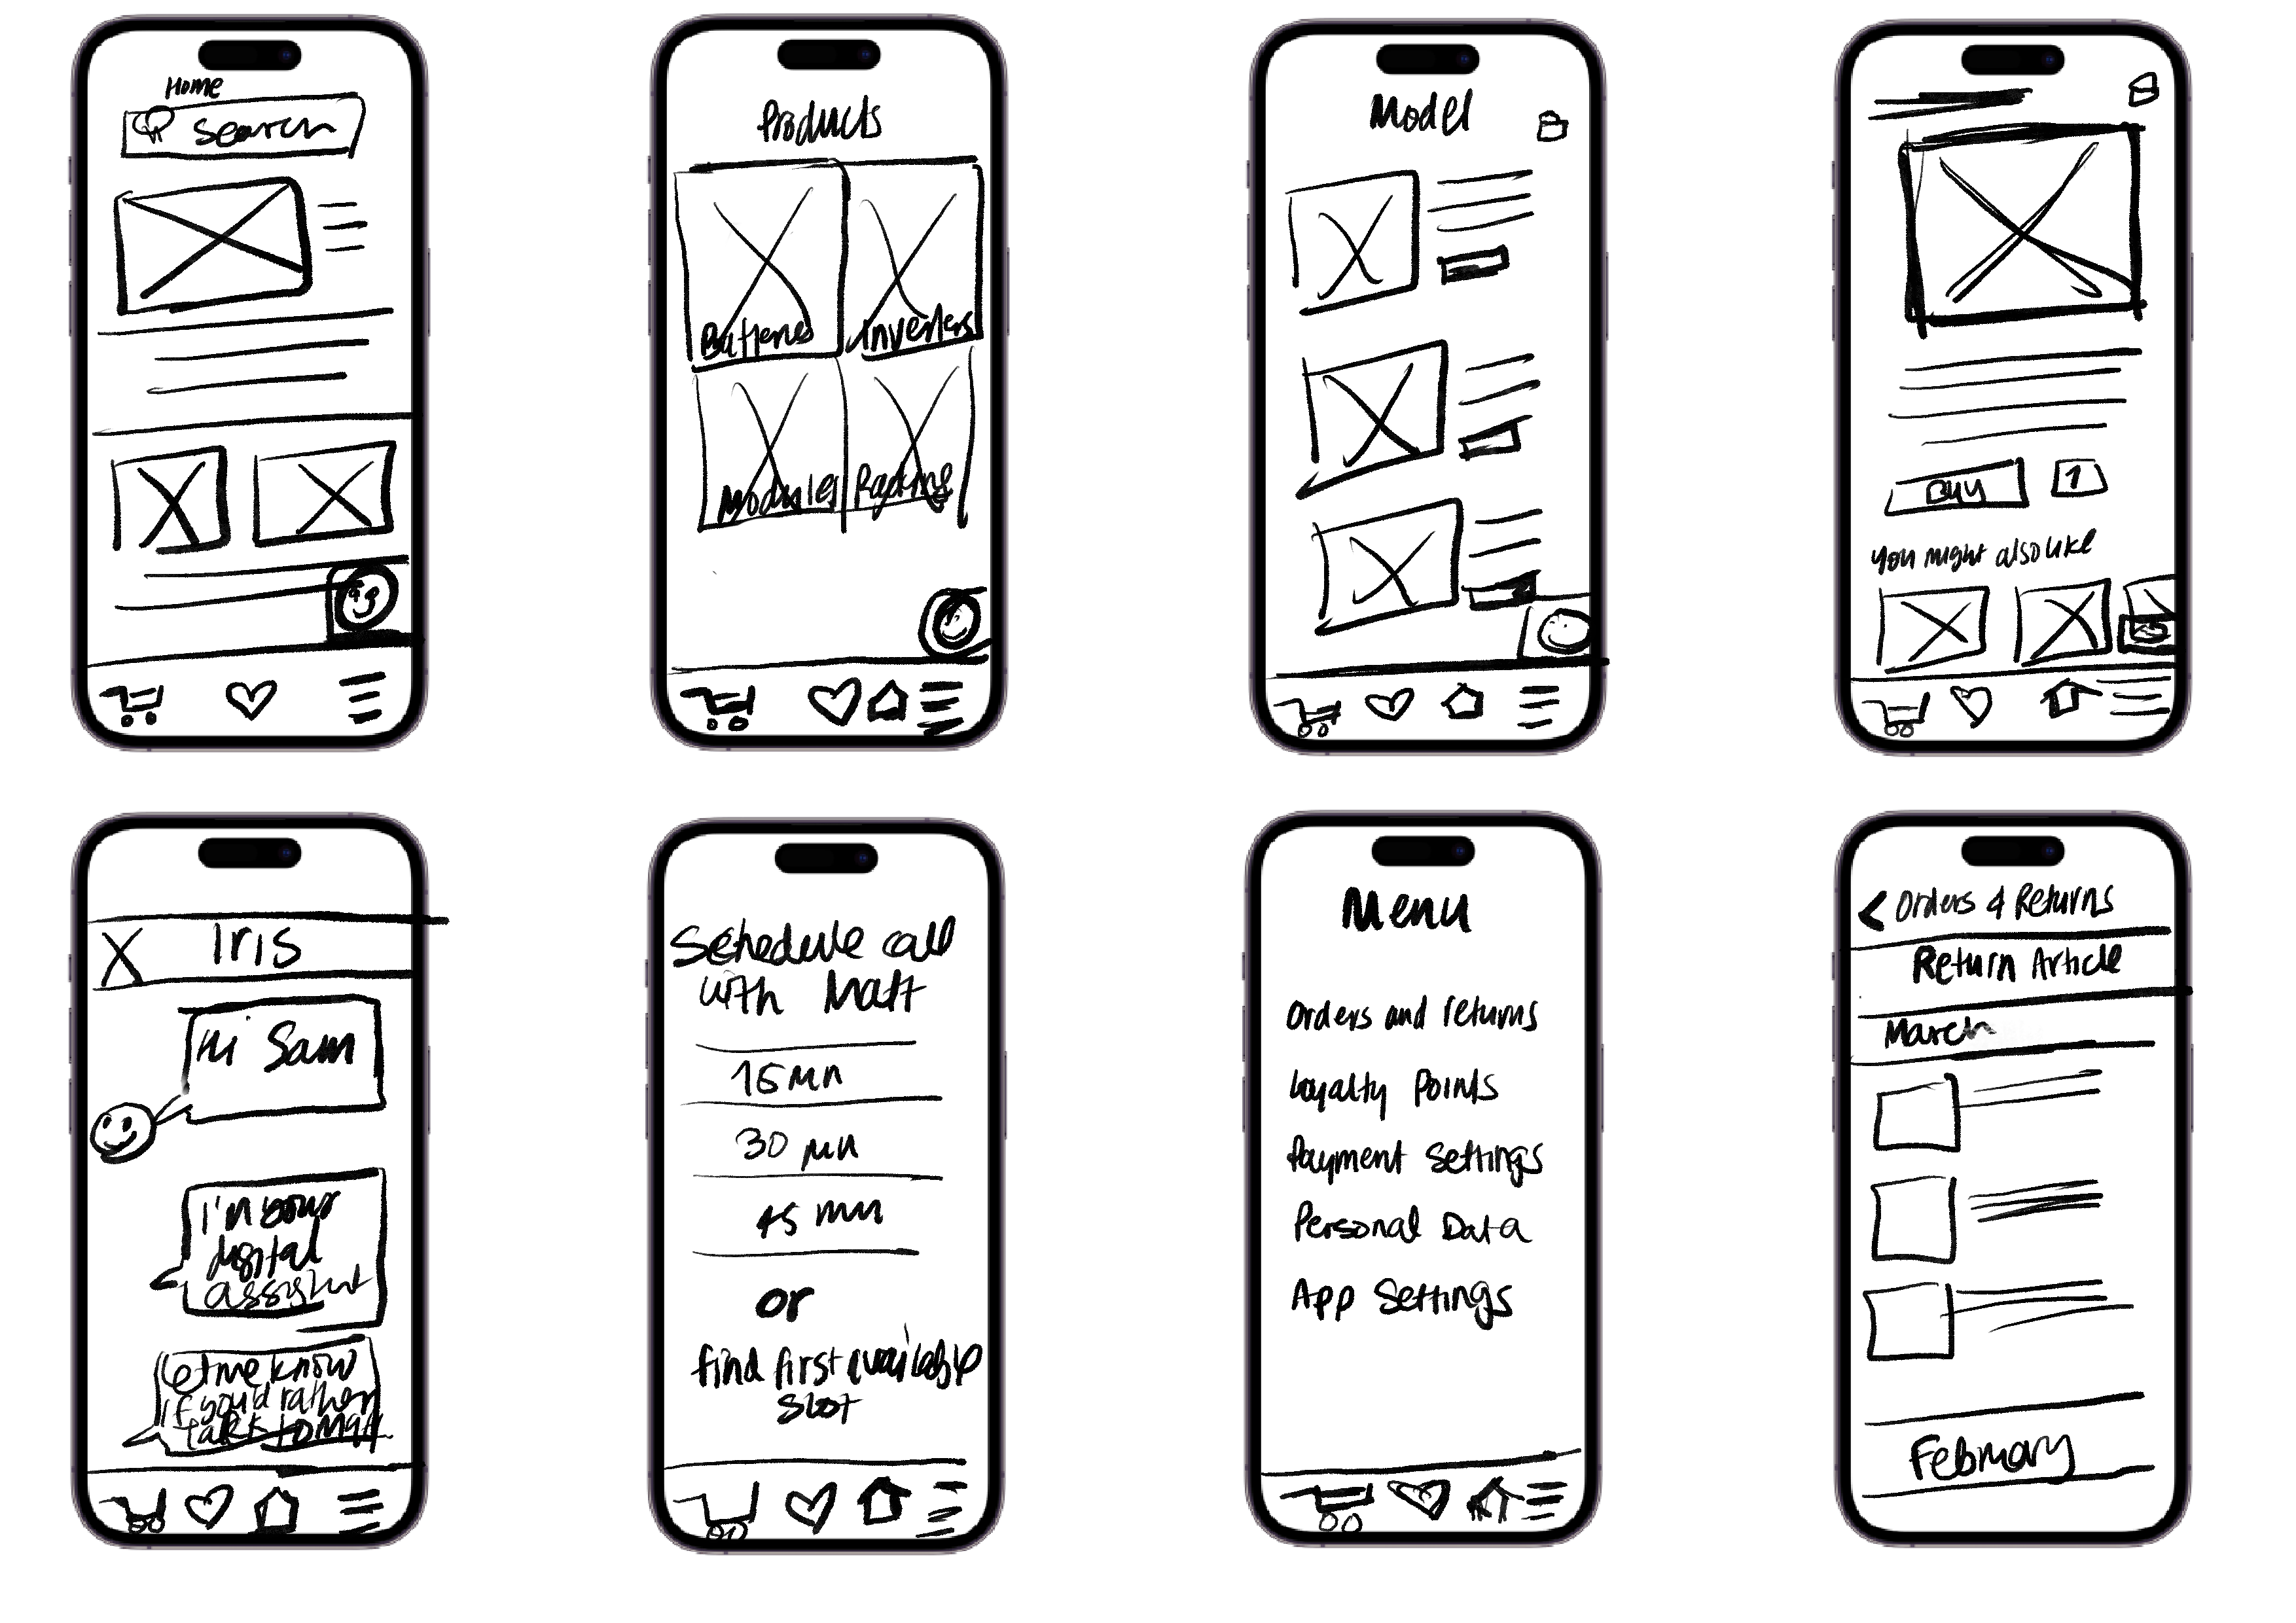 Home
Search
Products
Batteries
Inverters
Modules
Racking
Model
Buy
1
You might also like
Iris
Hi Sam
I'm your
digital
assistent
Let me know
if you'd rather
talk to Matt
Schedule call
with Matt
15 min
30 min
45 min
or
find first available
slot
Menu
Orders and returns
Loyalty Points
Payment Settings
Personal Data
App Settings
Orders & Returns
Return Article
March
February